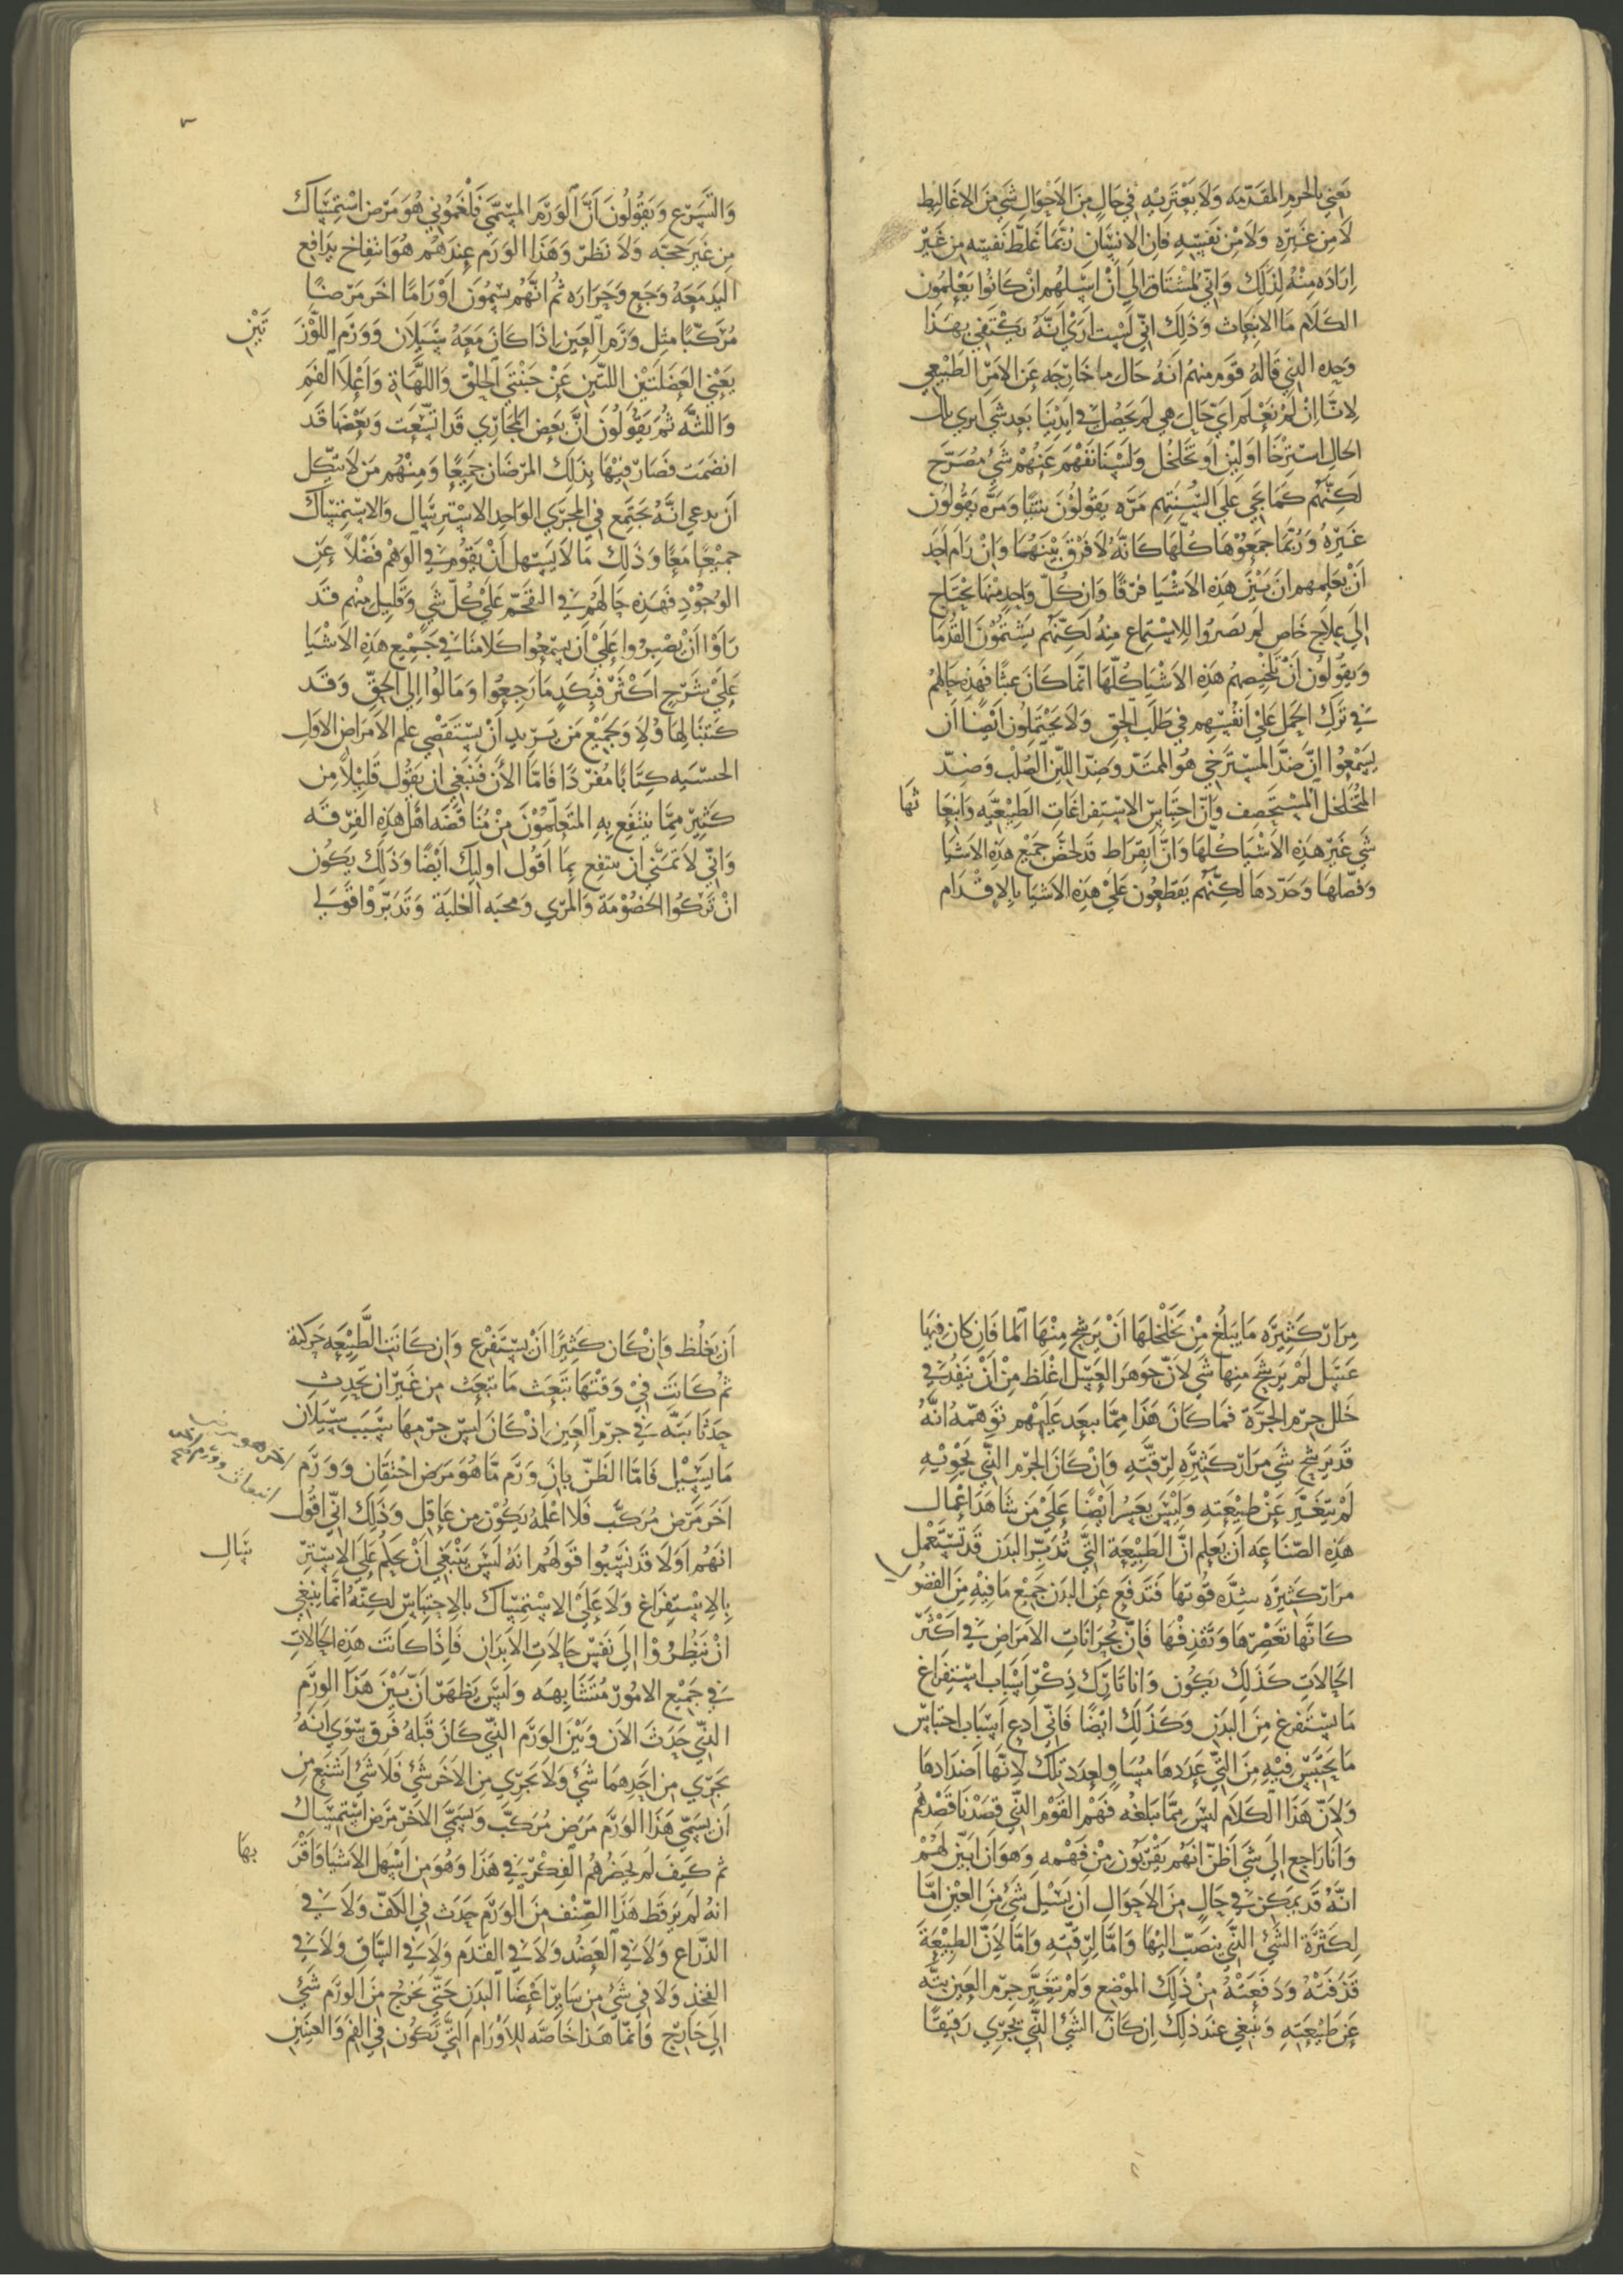 يعني بالحرم المقدميه ولا يعتريه في حال من الاحوال شي من الاغاليط
لا من غيره ولا من نفسه فان الانسان ربما غلط نفسه من غير
ارادة منه لذلك واني لمشتاق الي أن اسلهم ان كانوا يعلمون
الكلام ما الانبعاث وذلك اني لست اري أنه يكتفي بهذا
وحده الذي قاله قوم منهم أنه حال ما خارجه عن الامر الطبيعي
لانا ان لم نعلم اي حال هي لم يحصل في ايدينا بعد شي اتري تلك
الحال استرخا او لين او تخلخل ولسنا نفهم عنهم شي مصرح
لكنهم كما يجي علي السنتهم مره يقولون شيا ومره يقولون
غيره وربما جمعوها كلها كانه لا فرق بينهما وان رام احد
أن يعلمهم ان بين هذه الاشيا فرقا وان كل واحد منها يحتاج
الي علاج خاص لم يصبروا للاستماع منه لكنهم يشتمون القدما
ويقولون أن تلخيصهم هذه الاشيا كلها انما كان عبثا فهذه حالهم
في ترك الحمل علي انفسهم في طلب الحق ولا يحتملون ايضا ان
يسمعوا ان ضد المسترخي هو الممتد وضد اللين الصلب وضد
المتخلخل المستحصف وان احتباس الاستفراغات الطبيعيه وانبعا
ثها
شي غير هذه الاشيا كلها وان ابقراط قد لخص جميع هذه الاشيا
وفصلها وحددها لكنهم يقطعون علي هذه الاشيا بالاقدام
والتسرع ويقولون أن الورم المسمي فلغموني هو مرض استمساك
من غير حجه ولا نظر وهذا الورم عندهم هو انتفاخ يدافع
اليد معه وجع وحراره ثم انهم يسمون اوراما اخر مرضا
مركبا مثل ورم العين اذا كان معه سيلان وورم اللوز
تين
يعني العضلتين اللتين عن جنبتي الحلق واللهاة واعلا الفم
واللثه ثم يقولون ان بعض المجاري قد اتسعت وبعضها قد
انضمت فصار فيها بذلك المرضان جميعا ومنهم من لا ينكل
ان يدعي انه يجتمع في المجري الواحد الاسترسال والاستمساك
جميعا معا وذلك ما لا يسهل أن يقوم في الوهم فضلا عن
الوجود فهذه حالهم في التقحم علي كل شي وقليل منهم قد
راوا أن يصبروا علي أن يسمعوا كلامنا في جميع هذه الاشيا
علي شرح اكثر فبكد ما رجعوا ومالوا الي الحق وقد
كتبنا لهاولا ولجميع من يريد أن يستقصي علم الامراض الاول
الحسيه كتابا مفردا فاما الأن فينبغي ان يقول قليلا من
كثير مما ينتفع به المتعلمون من مناقضه اهل هذه الفرقه
واني لاتمني ان ينتفع بما اقول اوليك ايضا وذلك يكون
ان تركوا الخصومة والمري ومحبه الغلبة وتدبروا قولي
مرار كثيره ما يبلغ من تخلخلها أن يرشح منها الما فان كان فيها
عسل لم يرشح منها شي لان جوهر العسل اغلظ من أن ينفذ في
خلل جرم الجرة فما كان هذا مما يبعد عليهم توهمه انه
قد يرشح شي مرار كثيره لرقته وان كان الجرم الذي يحويه
لم يتغير عن طبيعته وليس يعسر ايضا علي من شاهد اعمال
هذه الصناعه ان يعلم ان الطبيعة التي تدبر البدن قد تستعمل
مرار كثيره شده قوتها فتدفع عن البدن جميع ما فيه من الفضو
ل
كانها تعصرها وتقذفها فان بحرانات الامراض في اكثر
الحالات كذلك يكون وانا تارك ذكر اسباب استفراغ
ما يستفرغ من البدن وكذلك ايضا فاني ادع اسباب احتباس
ما يحتبس فيه من التي عددها مساو لعدد تلك لانها اضدادها
ولان هذا الكلام ليس مما يبلغه فهم القوم الذي قصدنا قصدهم
وانا راجع الي شي اظن انهم يقربون من فهمه وهو ان ابين لهم
انه قد يمكن في حال من الاحوال ان يسيل شي من العين اما
لكثرة الشي الذي ينصب اليها واما لرقته واما لان الطبيعة
قذفته ودفعته من ذلك الموضع ولم يتغير جرم العين بته
عن طبيعته وينبغي عند ذلك ان كان الشي الذي يجري رقيقا
أن يغلظ وان كان كثيرا أن يستفرغ وان كانت الطبيعه حركته
ثم كانت في وقتها تبعث ما تبعث من غير ان يحدث
حدثا بته في جرم العين اذ كان ليس جرمها سبب سيلان
ما يسيل فاما الظن بان ورم ما هو مرض احتقان وورم
اخر مرض مركب فلا اعلمه يكون من عاقل وذلك اني اقول
انهم اولا قد نسبوا قولهم انه ليس ينبغي أن يحكم علي الاستر
سال
بالاستفراغ ولا علي الاستمساك بالاحتباس لكنه انما ينبغي
ان ينظروا الي نفس حالات الابدان فاذا كانت هذه الحالات
في جميع الامور متشابهه وليس يظهر ان بين هذا الورم
الذي حدث الان وبين الورم الذي كان قبله فرق سوي أنه
يجري من احدهما شي ولا يجري من الاخر شي فلا شي اشنع من
أن يسمي هذا الورم مرض مركب ويسمي الاخر مرض استمساك
ثم كيف لم يحضرهم الفكر في هذا وهو من اسهل الاشيا واقر
بها
انه لم ير قط هذا الصنف من الورم حدث في الكف ولا في
الذراع ولا في العضد ولا في القدم ولا في الساق ولا في
الفخذ ولا في شي من ساير اعضا البدن حتي يخرج من الورم شي
الي خارج وانما هذا خاصه للاورام التي تكون في الفم والعينين